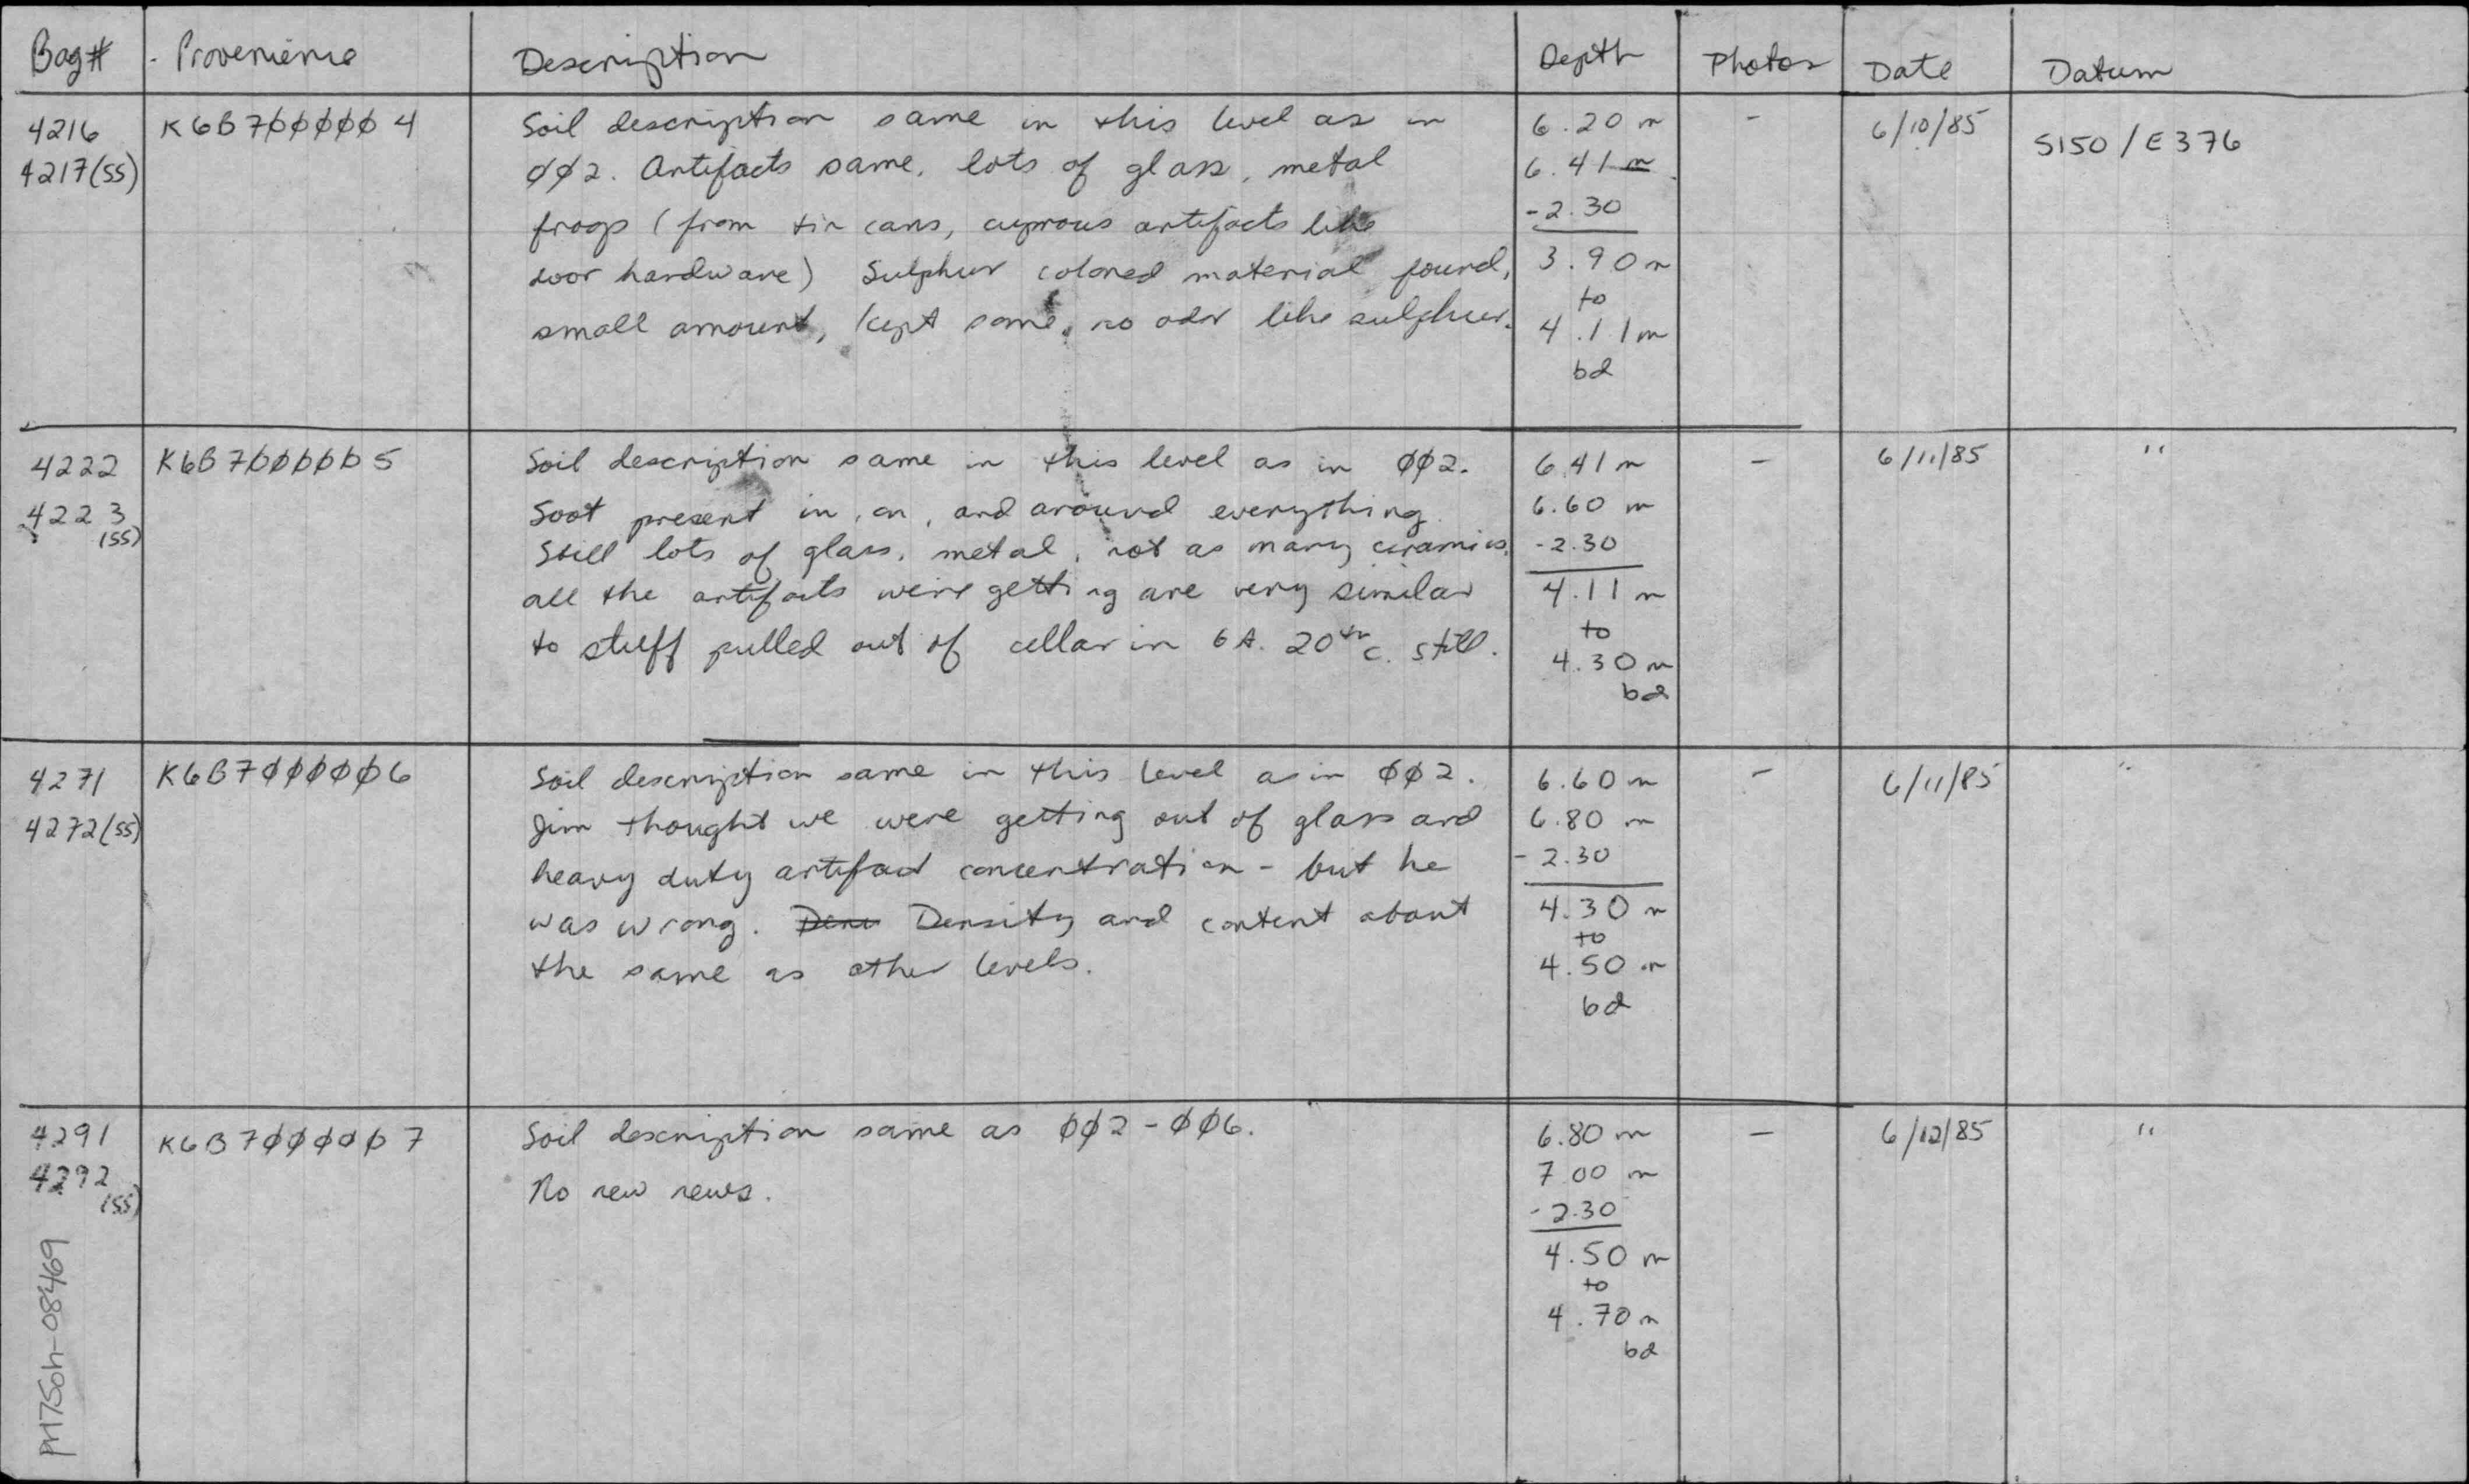 Bag# Provenience Description Depth Photos Date Datum
4216
4217(SS)
K6B7ØØØØØ4
Soil description same in this level as in
ØØ2. Artifacts same, lots of glass, metal
frags (from tin cans, cuprous artifacts like
door hardware) Sulphur colored material found,
small amount, kept some, no odor like sulphur.
6.20 m
6.41 m
-2.30
3.90 m
to
4.11 m
bd
-
6/10/85
S150/E376
4222
4223
(SS)
K6B7ØØØØØ5
Soil description same in this level as in ØØ2.
Soot present in, on, and around everything.
Still lots of glass, metal, not as many ceramics.
all the artifacts we're getting are very similar
to stuff pulled out of cellar in 6A. 20th c. still.
6.41 m
6.60 m
-2.30
4.11 m
to
4.30 m
bd
-
6/11/85
"
4271
4272(SS)
K6B7ØØØØØ6
Soil description same in this level as in ØØ2.
Jim thought we were getting out of glass and
heavy duty artifact concentration - but he
was wrong. Dens Density and content about
the same as other levels.
6.60 m
6.80 m
-2.30
4.30 m
to
4.50 m
bd
-
6/11/85
"
4291
4292
(SS)
K6B7ØØØØØ7
Soil description same as ØØ2-ØØ6.
No new news.
6.80 m
7.00 m
-2.30
4.50 m
to
4.70 m
bd
-
6/12/85
"
PM75oh-08469